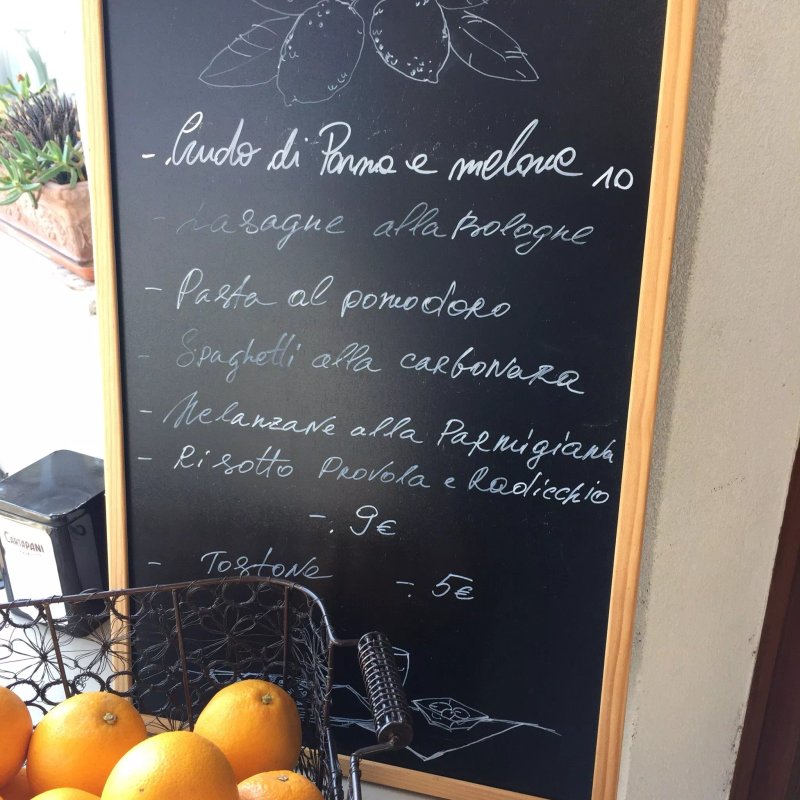 - Crudo di Parma e melone 10
- Lasagne alla Bologne
- Pasta al pomodoro
- Spaghetti alla carbonara
- Melanzane alla Parmigiana
- Risotto Provola e Radicchio
-. 9€
- Tostone -. 5€
CARTAPANI